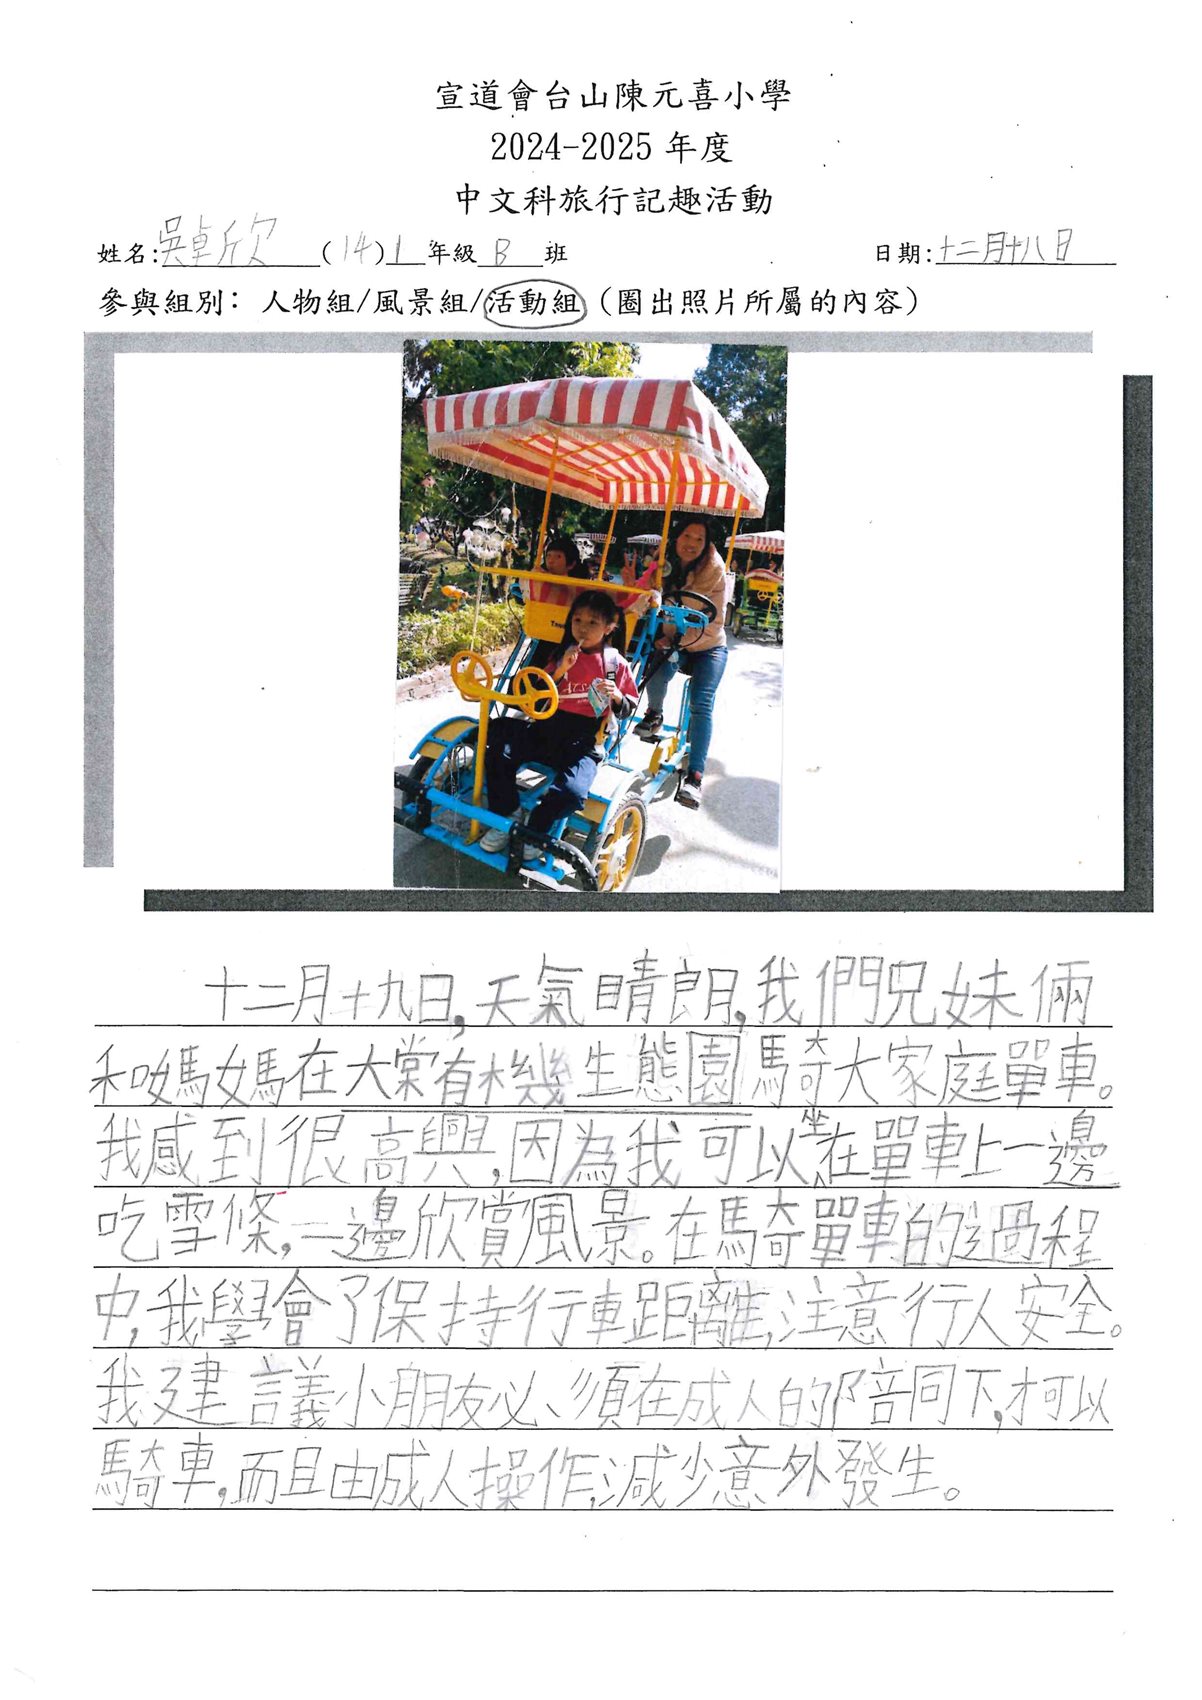 宣道會台山陳元喜小學
2024-2025 年度
中文科旅行記趣活動
姓名:吳卓欣(14)1年級B班 日期:十二月十八日
參與組別：人物組/風景組/活動組（圈出照片所屬的內容）
十二月十九日,天氣晴朗,我們兄妹倆
和媽媽在大棠有機生態園騎大家庭單車。
我感到很高興,因為我可以坐在單車上一邊
吃雪條,一邊欣賞風景。在騎單車的過程
中,我學會了保持行車距離,注意行人安全。
我建議小朋友必須在成人的陪同下,才可以
騎車,而且由成人操作,減少意外發生。